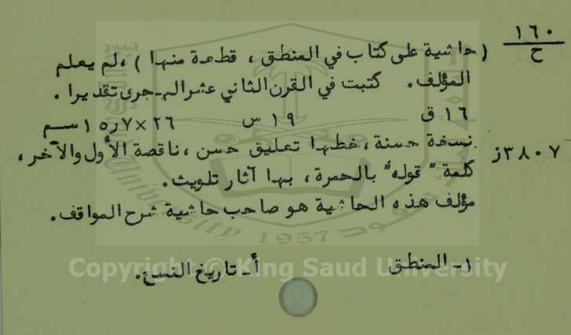 ١٦٠
ح
(حاشية على كتاب في المنطق ، قطعة منها) ، لم يعلم
المؤلف. كتبت في القرن الثاني عشر الهجرى تقديرا .
١٦ ق ١٩ س ٢٦×٧ر١٥ سم
٣٨٠٧ز نسخة حسنة ، خطها تعليق حسن ، ناقصة الأول والآخر ،
كلمة "قوله" بالحمرة ، بها آثار تلويث.
مؤلف هذه الحاشية هو صاحب حاشية شرح المواقف.
١- المنطق أ- تاريخ النسخ.
1957
Copyright © King Saud University